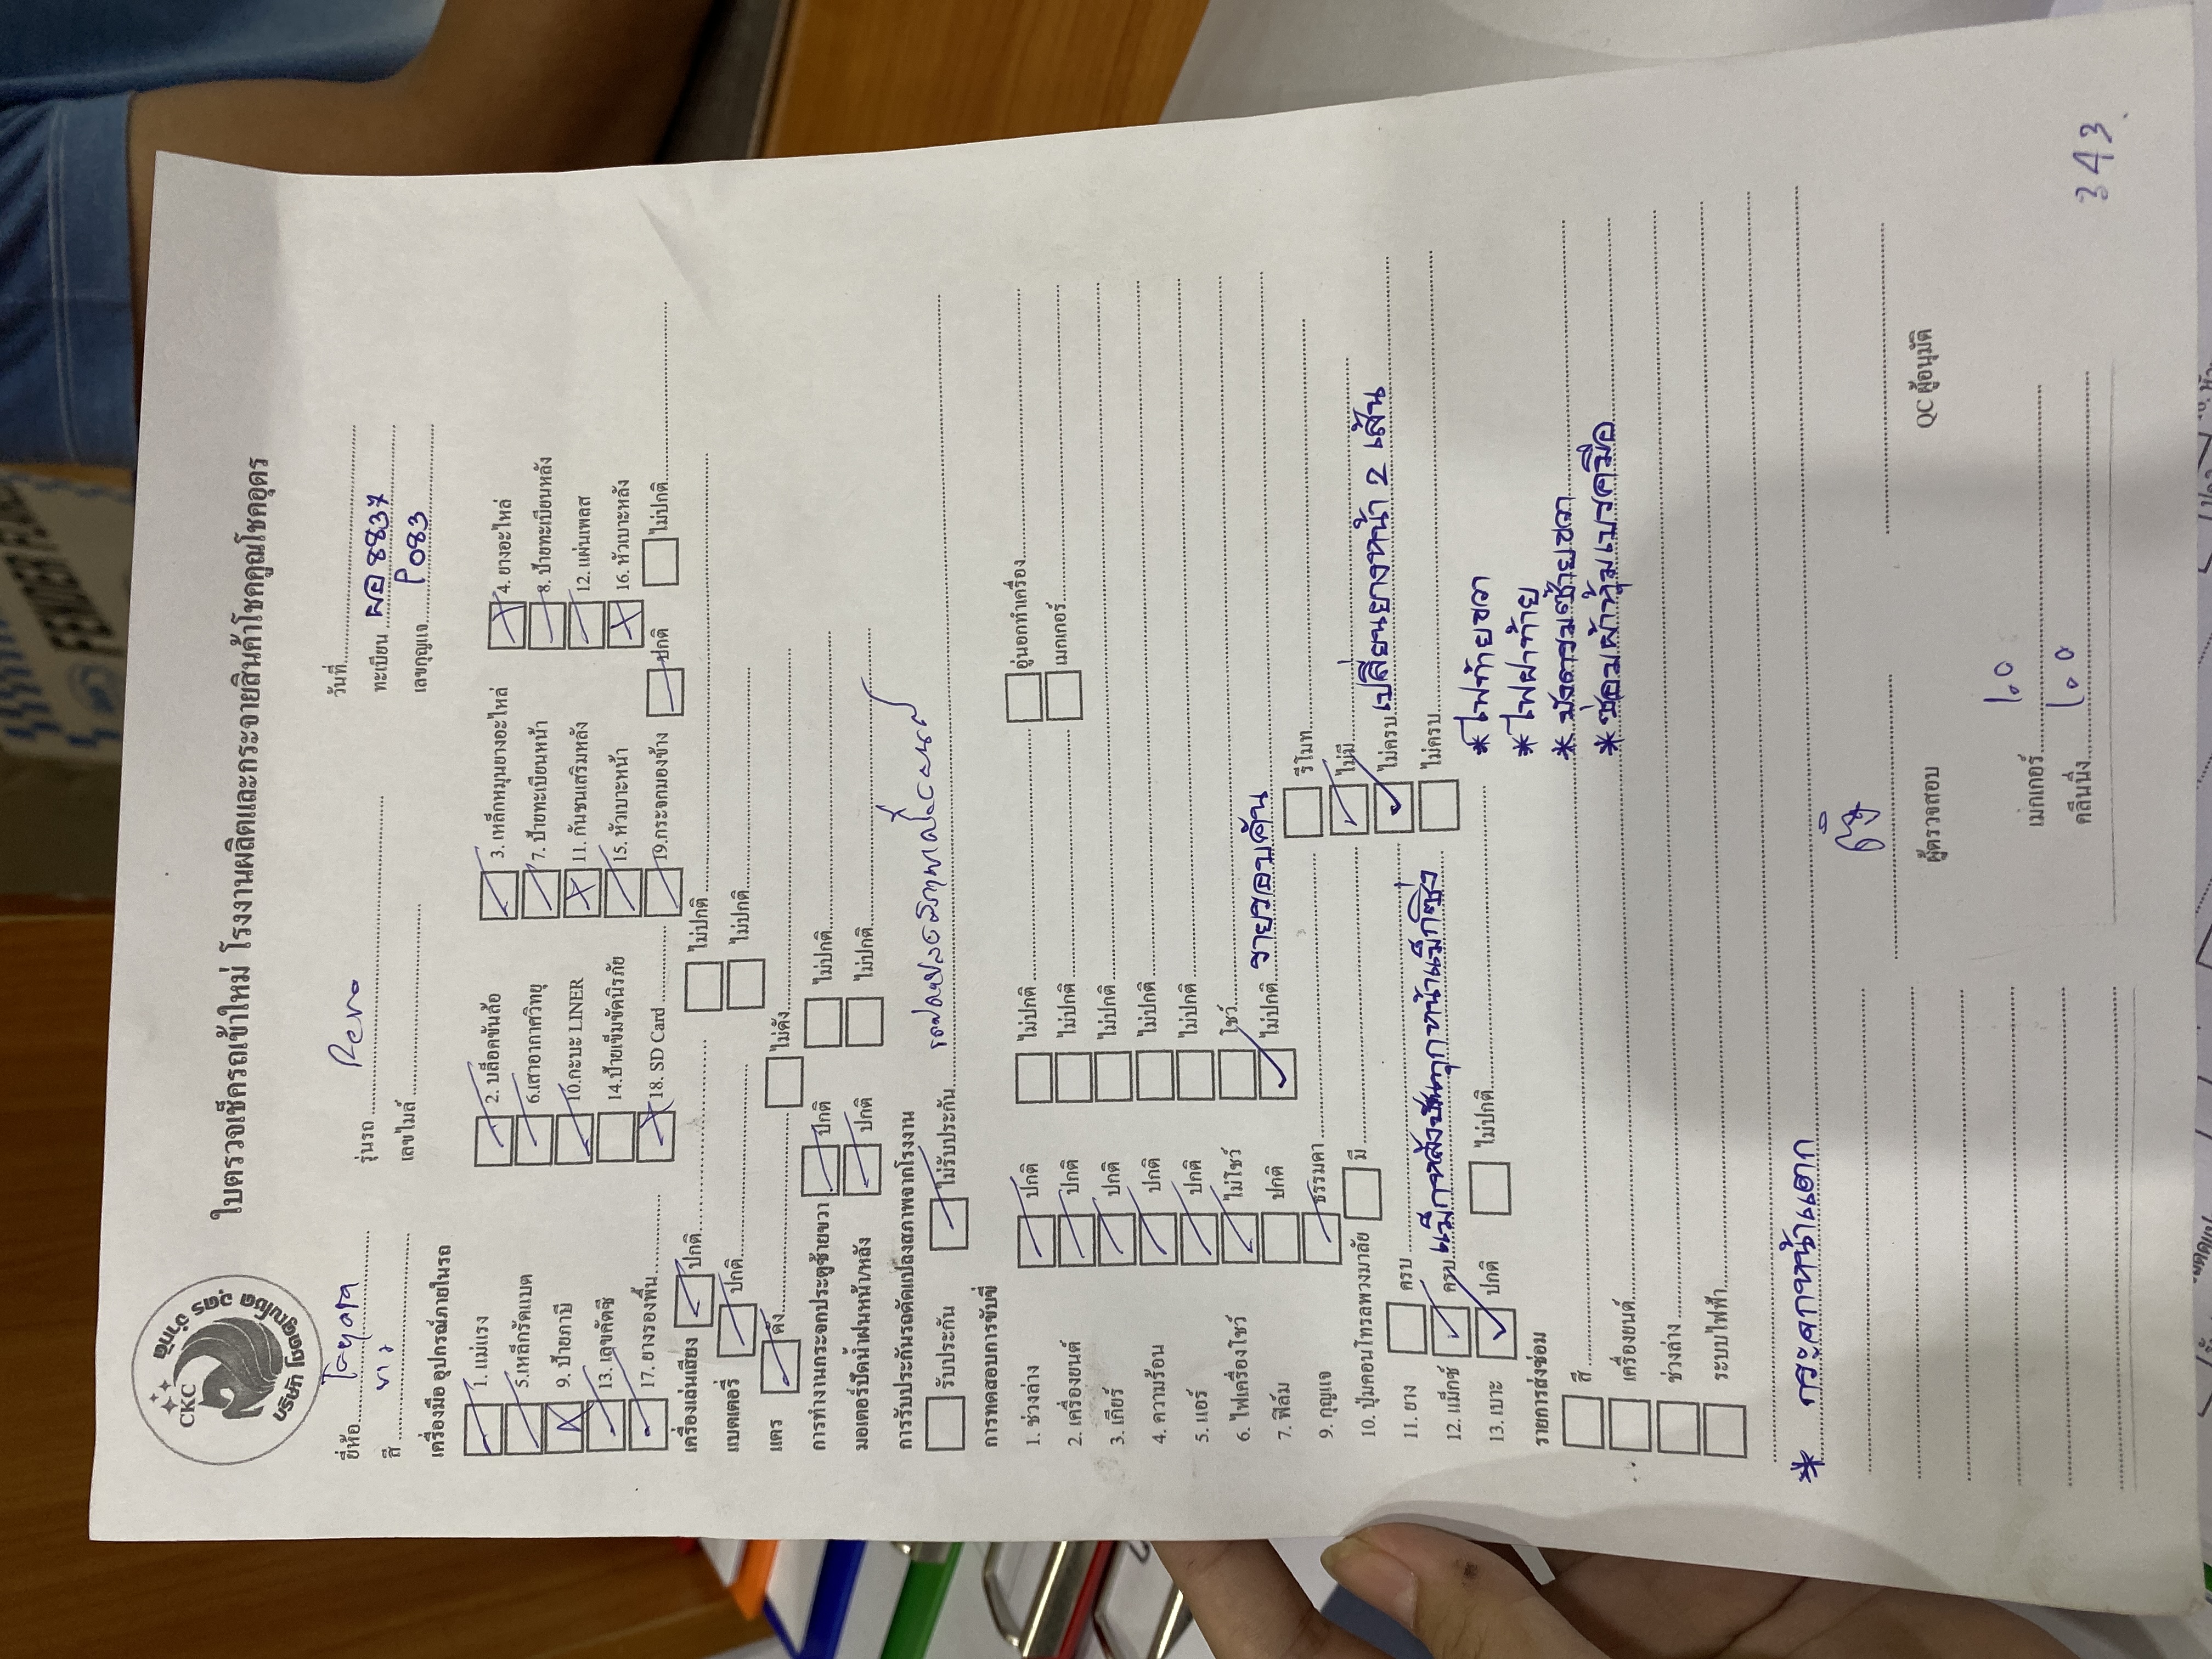 CKC
บริษัท โชคคูณโชค อุดร จำกัด
ใบตรวจเช็ครถเข้าใหม่ โรงงานผลิตและกระจายสินค้าโชคคูณโชคอุดร
ยี่ห้อ โตยุตา รุ่นรถ Revo วันที่
สี ขาว เลขไมล์ ทะเบียน ผอ 8837
เลขกุญแจ P083
เครื่องมือ อุปกรณ์ภายในรถ
1. แม่แรง 2. บล็อคขันล้อ 3. เหล็กหมุนยางอะไหล่ 4. ยางอะไหล่
5.เหล็กรัดแบต 6.เสาอากาศวิทยุ 7. ป้ายทะเบียนหน้า 8. ป้ายทะเบียนหลัง
9. ป้ายภาษี 10.กะบะ LINER 11. กันชนเสริมหลัง 12. แผ่นเพลส
13. เลขคัตซี 14.ป้ายเข็มขัดนิรภัย 15. หัวเบาะหน้า 16. หัวเบาะหลัง
17. ยางรองพื้น 18. SD Card 19.กระจกมองข้าง ปกติ ไม่ปกติ
เครื่องเล่นเสียง ปกติ ไม่ปกติ
แบตเตอรี่ ปกติ ไม่ปกติ
แตร ดัง ไม่ดัง
การทำงานกระจกประตูซ้ายขวา ปกติ ไม่ปกติ
มอเตอร์ปัดน้ำฝนหน้า/หลัง ปกติ ไม่ปกติ
การรับประกันรถดัดแปลงสภาพจากโรงงาน
รับประกัน ไม่รับประกัน
การทดสอบการขับขี่
1. ช่วงล่าง ปกติ ไม่ปกติ อู่นอกทำเครื่อง
2. เครื่องยนต์ ปกติ ไม่ปกติ เมกเกอร์
3. เกียร์ ปกติ ไม่ปกติ
4. ความร้อน ปกติ ไม่ปกติ
5. แอร์ ปกติ ไม่ปกติ
6. ไฟเครื่องโชว์ ไม่โชว์ โชว์
7. ฟิล์ม ปกติ ไม่ปกติ รายรอบคัน
9. กุญแจ ธรรมดา รีโมท
10. ปุ่มคอนโทรลพวงมาลัย มี ไม่มี
11. ยาง ครบ ไม่ครบ เปลี่ยนยางหน้า 2 เส้น
12. แม็กซ์ ครบ ไม่ครบ
13. เบาะ ปกติ ไม่ปกติ
* ไฟท้ายขวา
* ไฟฝาท้าย
รายการส่งซ่อม
สี * บังตรมซ้ายขวา
เครื่องยนต์ * ซ่อมผ้าหุ้มเบรคมือ
ช่วงล่าง
ระบบไฟฟ้า
* กระจกหน้าแตก
ผู้ตรวจสอบ QC ผู้อนุมัติ
เมกเกอร์ 1.0
คลีนนิ่ง 1.0
343.
FENDER